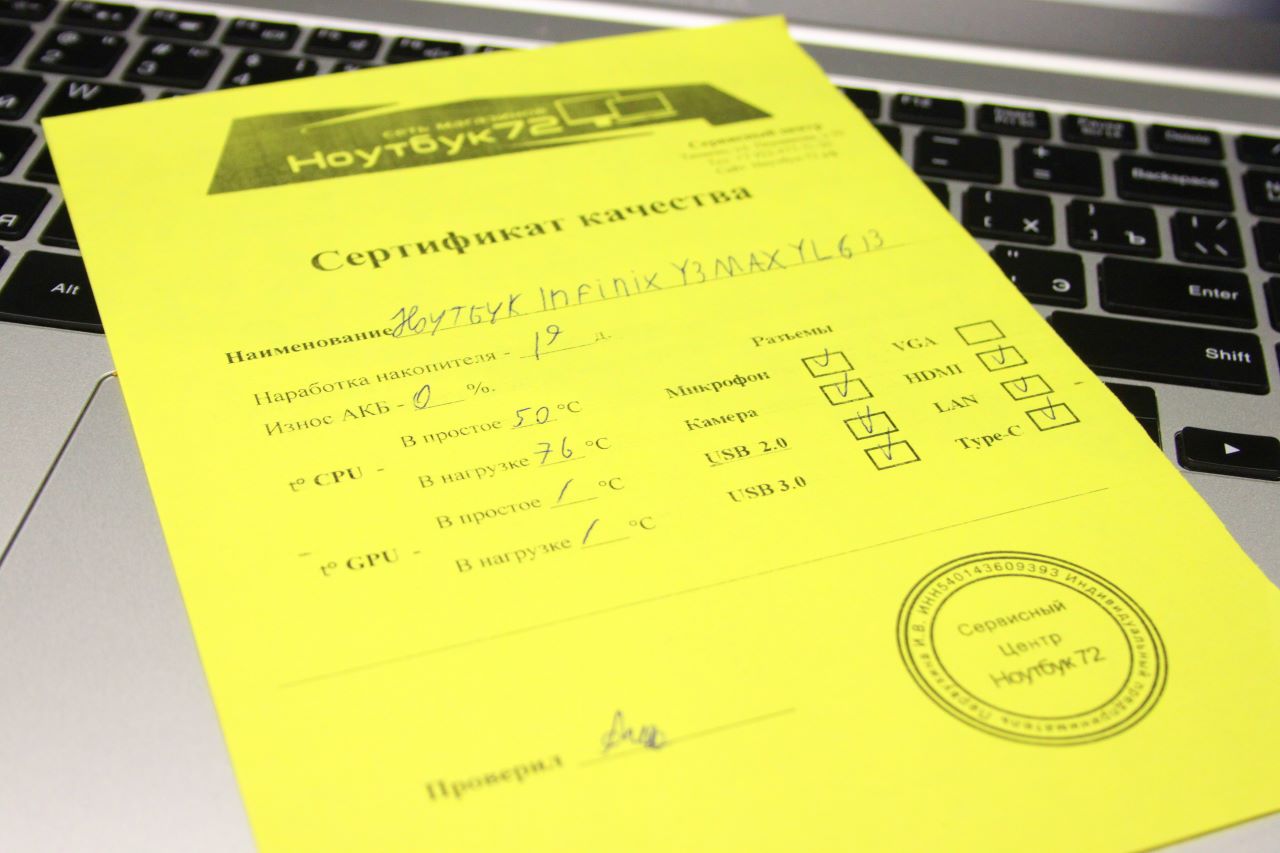 сеть магазинов
Ноутбук72
Сервисный центр
Сертификат качества
Наименование Ноутбук Infinix Y3 MAX YL613
Наработка накопителя - д.
Износ АКБ - 0 %.
t° CPU -
В простое 50 °C
В нагрузке 76 °C
t° GPU -
В простое / °C
В нагрузке / °C
Разъемы
Микрофон
Камера
USB 2.0
USB 3.0
VGA
HDMI
LAN
Type-C
Индивидуальный предприниматель И.В. ИНН540143609393
Сервисный
Центр
Ноутбук 72
Проверил
2
3
4
W
Я
Alt
F12
-
+
=
Backspace
[ Х
] Ъ
\
Э
Enter
Shift